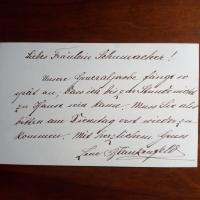 Liebes Fräulein Schumacher!
Unsere Generalprobe fängt so
spät an, dass ich bis zur Stunde nicht
zu Hause sein kann. Muss Sie also
bitten am Dienstag erst wieder zu
kommen. Mit herzlichem Gruss
Blankenfeld